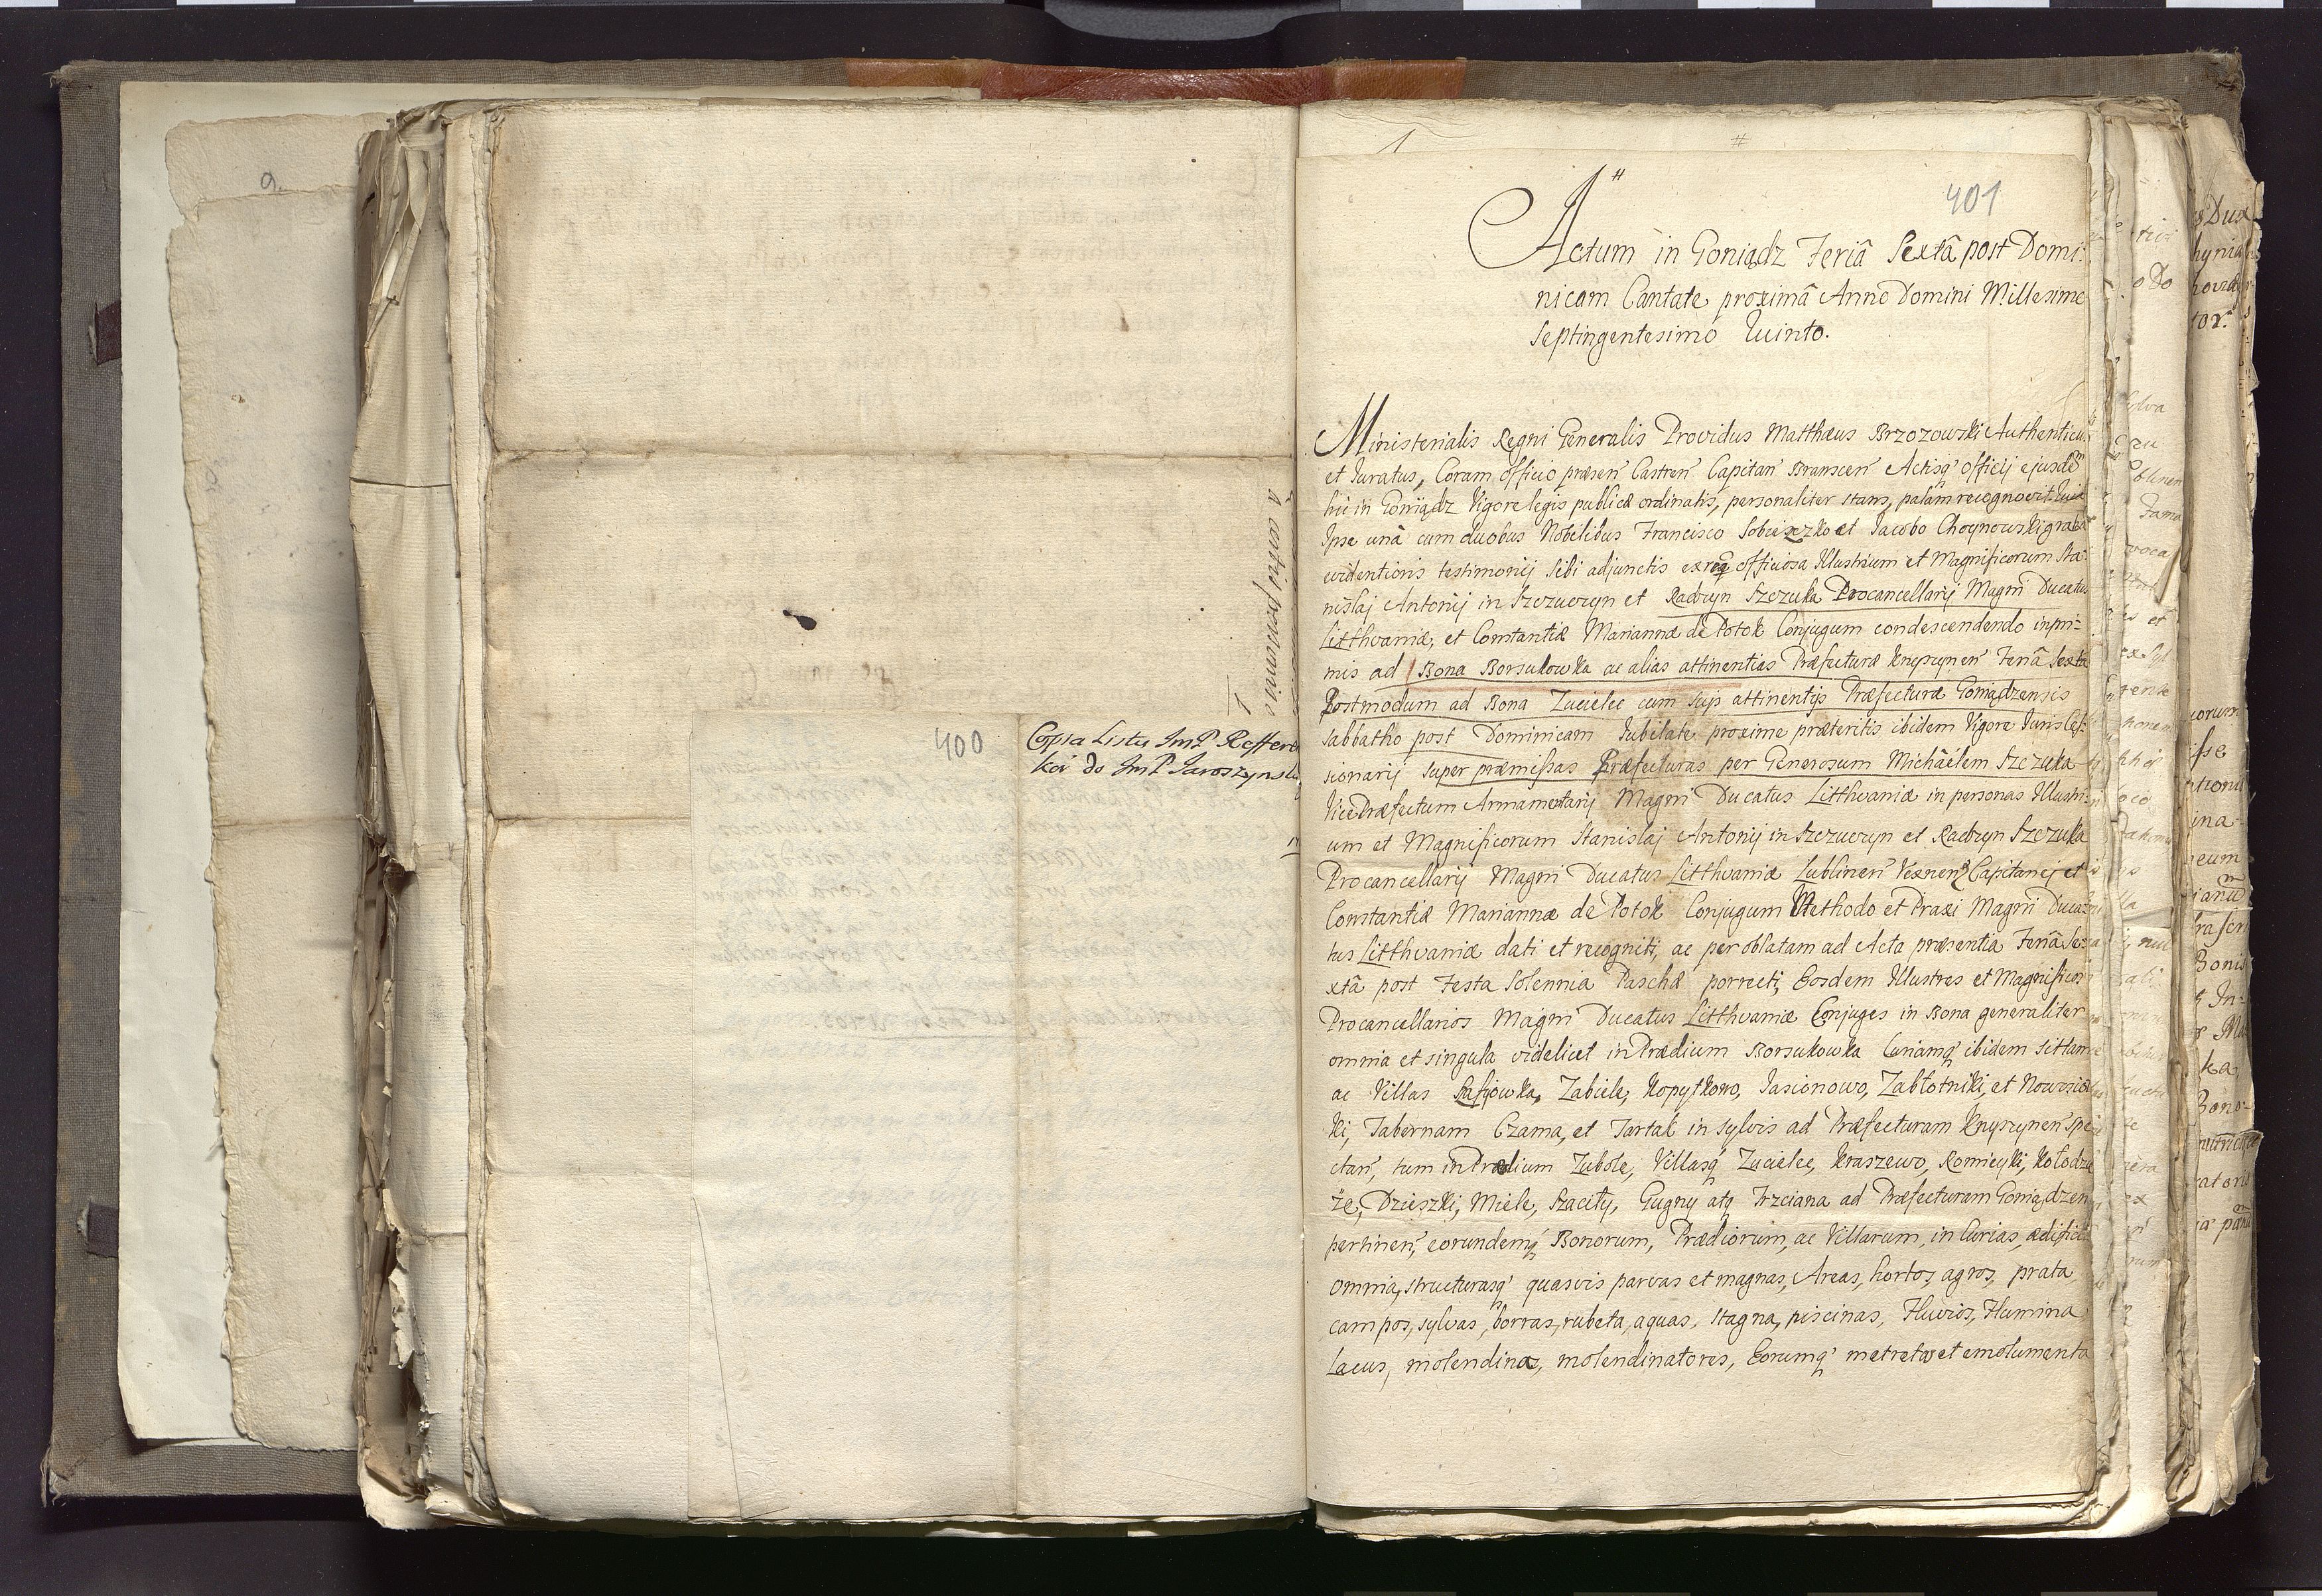 400
Copia Listu JmP Reffere
kói do JmP Jaroszynsk
1
#
401
Actum in Goniądz Feriâ Sextâ post Domi:
nicam Cantate proximâ Anno Domini Millesimo
Septingentesimô Quinto.
Ministerialis Regni Generalis Providus Matthæus Brzozowski Authenticu
et Juratus, Coram officio præsen̄ Castren̄ Capitan̄ Branscen̄ Actisq́ officij ejusdē
hic in Goniądz Vigore legis publicæ ordinatis, personaliter stans, palàm recognovit. Quia
Ipse unâ cum duobus Nobilibus Francisco Sobieszko et Jacobo Choynowski gratiâ
evidentioris testimonij Sibi adjunctis ex req officiosa Illustrium et Magnificorum Sta:
nislaj Antonij in Szczuczyn et Radzyn Szczuka Procancellarij Magni Ducatus
Litthvaniæ, et Constantiæ Mariannæ de Potok Conjugum condescendendo inpri=
mis ad Bona Borsukowka ac alias attinentias Præfecturæ Knyszynen̄ Feriâ Sexta
Postmodum ad Bona Zucielec cum suis attinentijs Præfecturæ Goniądzensis
Sabbatho post Dominicam Jubilate proxime præteritis ibidem Vigore Juris Ces:
sionarij super præmissas Præfecturas per Generosum Michäelem Szczuka
Vice Præfectum Armamentarij Magni Ducatus Litthvaniæ in personas Illustri
um et Magnificorum Stanislaj Antonij in Szczuczyn et Radzyn Szczuka
Procancellarij Magni Ducatus Litthvaniæ Lublinen̄ Capitanej et
Constantiæ Mariannæ de Potok Conjugum Methodo et Praxi Magni Duca:
tus Litthvaniæ dati et recogniti, ac per oblatam ad Acta præsentia Feriâ Se:
xtâ post Festa Solennia Paschæ porrecti, Eosdem Illustres et Magnificos
Procancellarios Magni Ducatus Litthvaniæ Conjuges in Bona generaliter
omnia et singula videlicet in Prædium Borsukowka Curiamq́ ibidem sittam
ac Villas Zabiele, Kopytkowo, Jasionowo, Zabłotniki, et Nowosiol
ki, Tabernam Czama, et Tartak in sylvis ad Præfecturam Knyszynen̄ spe
ctan̄, tum in Prædium Zubole, Villasq́ Zucielec, Kraszewo, Romieyki, Kołodzie
że, Dzieszki, Miele, Szacity, Gugny atq́ Trzciana ad Præfecturam Goniądzen
pertinen̄, eorundemq́ Bonorum, Prædiorum, ac Villarum, in Curias, ædificia
omnia, structurasq́ quasvis parvas et magnas, Areas, hortos, agros, prata
campos, sylvas, borras, rubeta, aquas, stagna, piscinas, Fluvios, Flumina
Lacus, molendina, molendinatores, Eorumq́ metretas et emolumenta